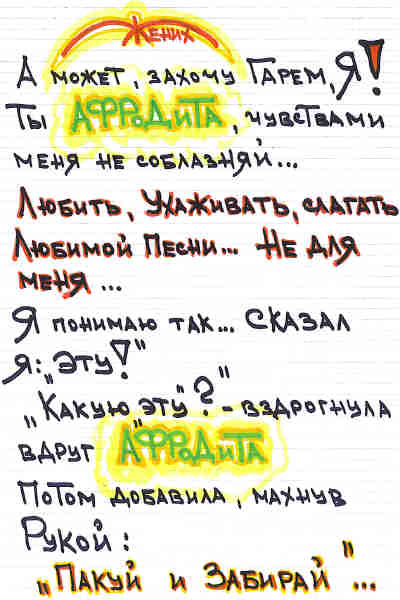 Жених
А может, захочу Гарем, Я!
Ты АФРоДиТА, чувствами
меня не соблазняй...
Любить, Ухаживать, слагать
Любимой Песни... Не для
меня...
Я понимаю так... Сказал
Я: „Эту!"
„Какую „эту"?" - вздрогнула
вдруг АФРоДиТА
Потом добавила, махнув
Рукой:
„Пакуй и Забирай"...